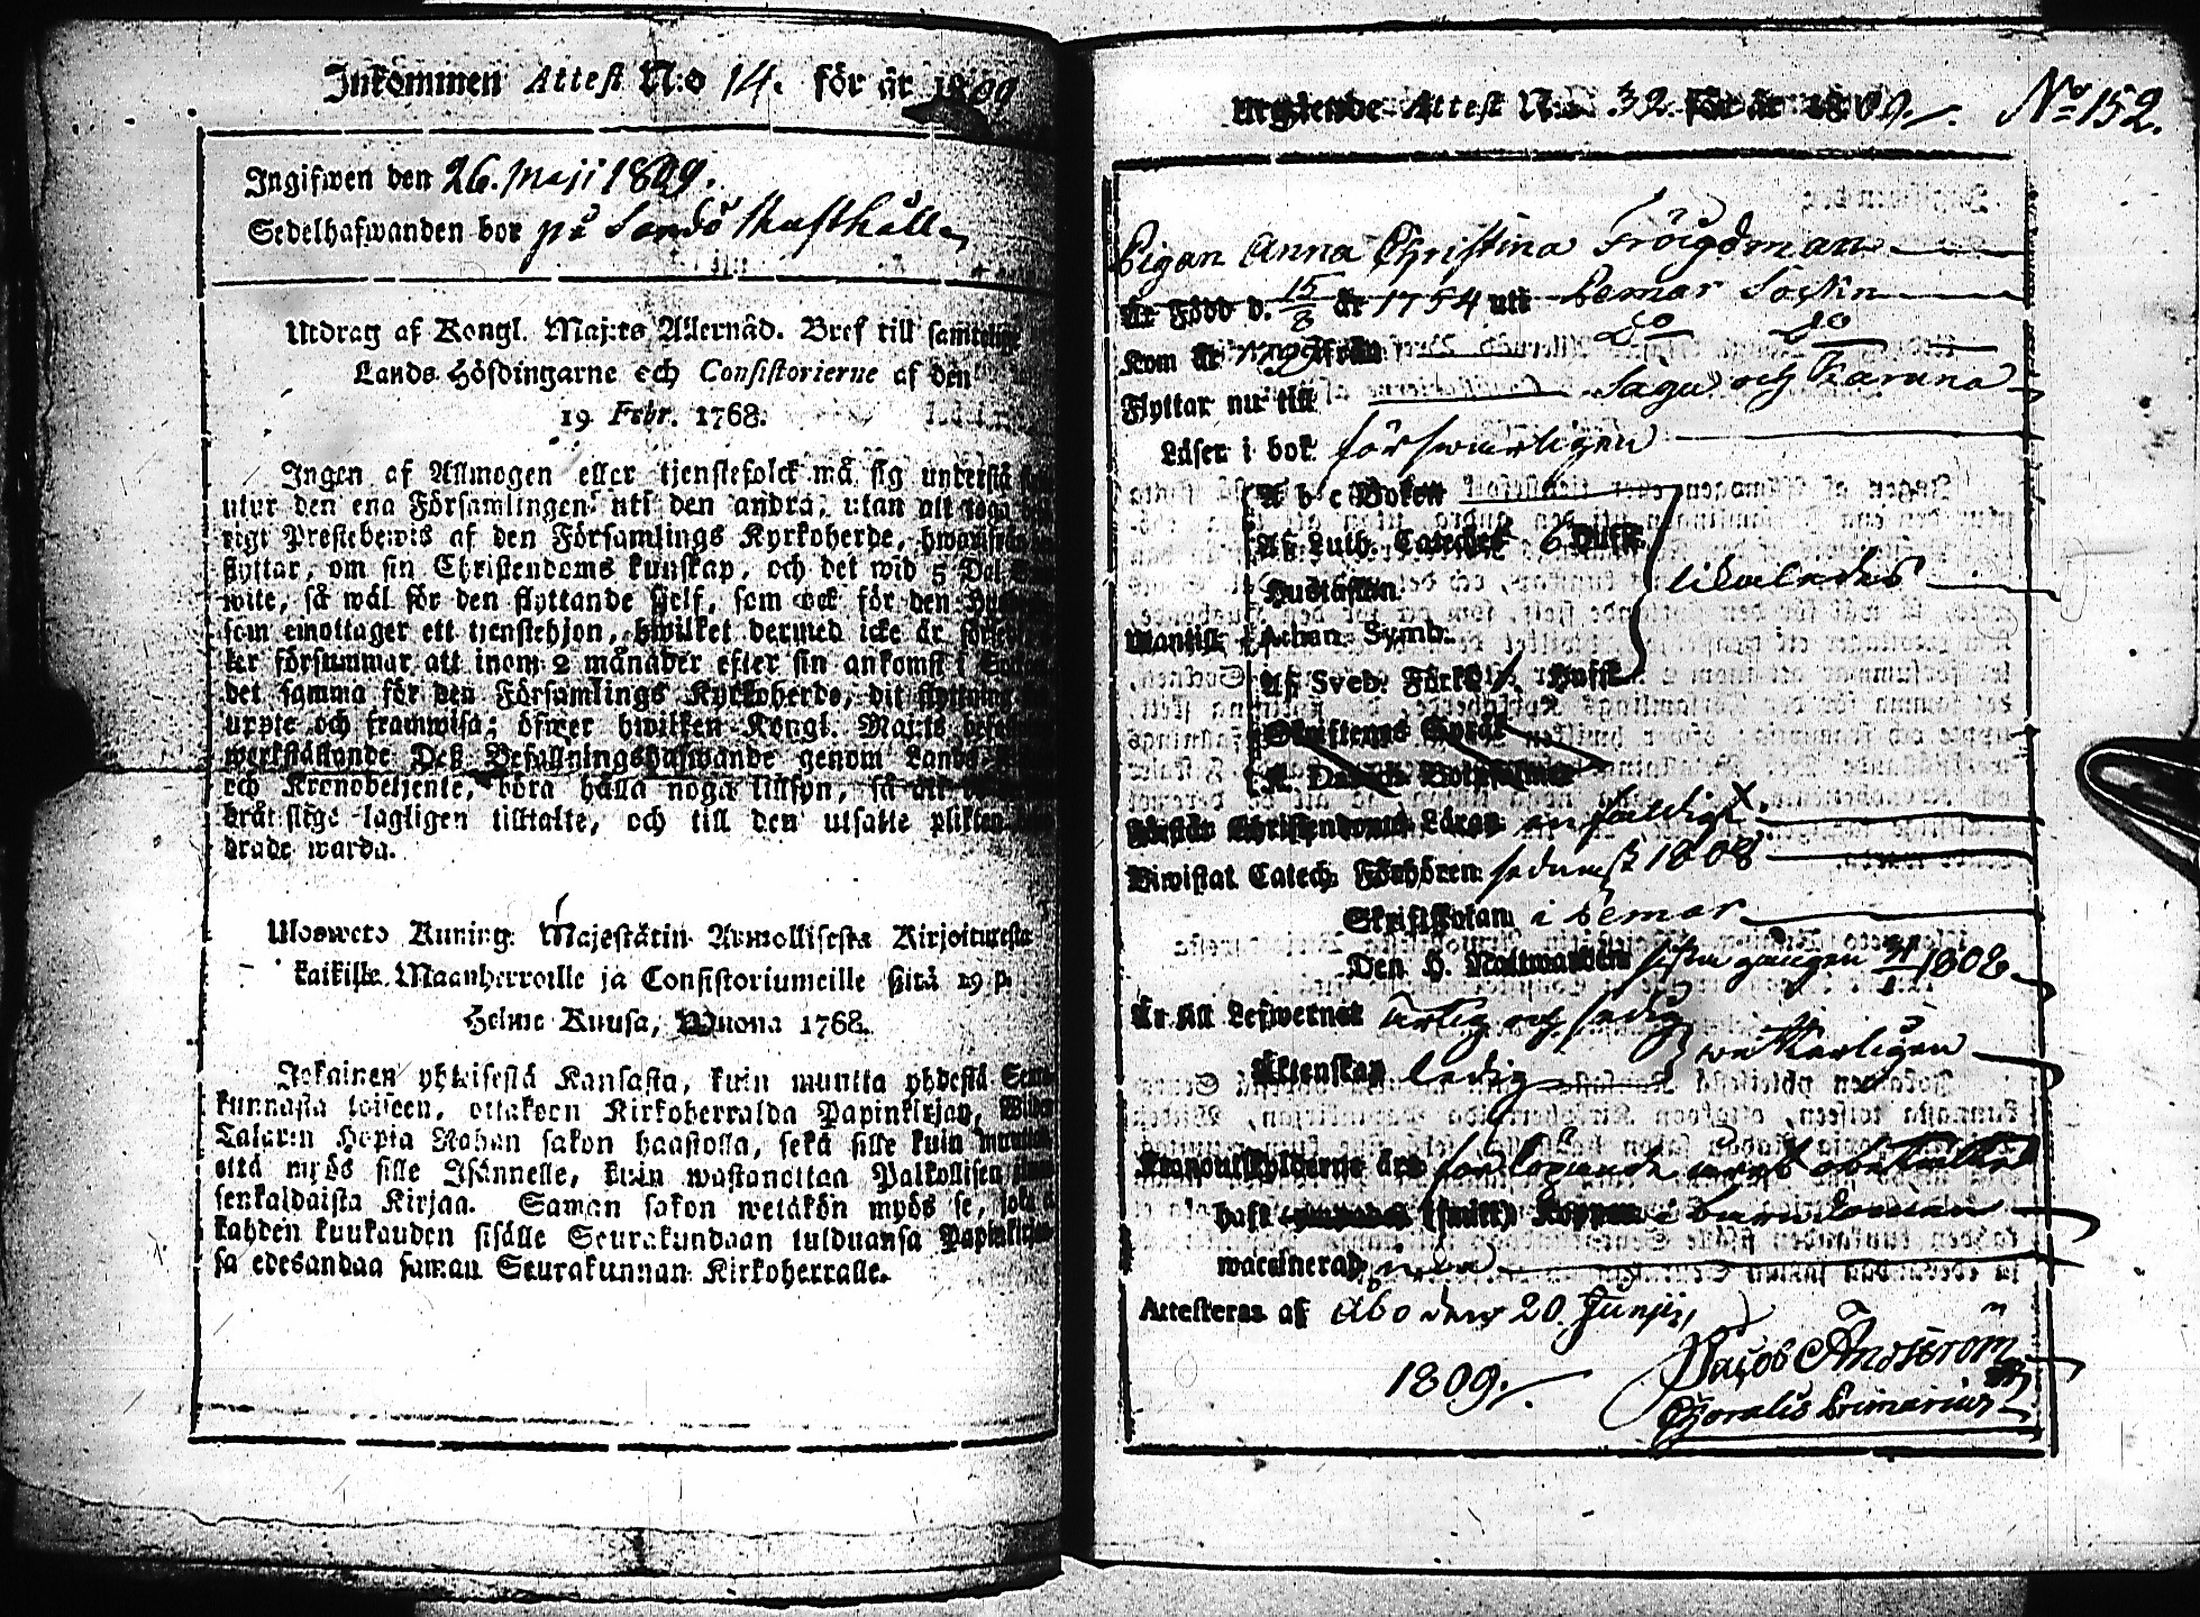 Inkommen Attest N:o 14. för år 1809
Ingifwen den 26. Maji 1809.
Sedelhafwanden bor på Sandö Rusthåll
Utdrag af Kongl. Maj:ts Allernåd. Bref till samtelige
Lands-Höfdingarne och Consistorierne af den
19 Febr. 1768.
Ingen af Allmogen eller tjenstefolck må sig understå
utur den ena Församlingen uti den andra, utan att taga
rigt Prestebewis af den Församlings Kyrkoherde, hwarifrån
flyttar, om sin Christendoms kunskap, och det wid 5 Dal.
wite, så wäl för den flyttande sjelf, som ock för den
som emottager ett tjenstehjon, hwilket dermed icke är
ler försummar att inom 2 månader efter sin ankomst i
det samma för den Församlings Kyrkoherde, dit flyttning
uppte och framwisa; öfwer hwilken Kongl. Maj:ts
werkställande Deß Befallningshafwande genom Lands
och Kronobetjente, böra hålla noga tillsyn, så att
bråtslige lagligen tilltalte, och till den utsatte plikten
drade warda.
Ulosweto Kuning. Majestätin Armollisesta Kirjoituresta
kaikille Maanherroille ja Consistoriumeille sitä 19 p.
Helme Kuusa, Wuona 1768.
Jokainen yhteisestä Kansasta, kuin muutta yhdestä Seura
kunnasta toiseen, ottakoon Kirkoherralda Papinkirjan, Wiiden
Talarin Hopia Rahan sakon haastolla, sekä sille kuin muuttaa
että myös sille Isännelle, kuin wastanottaa Palkollisen
senkaldaista Kirjaa. Saman sakon wetäkön myös se, joka
kahden kuukauden sisälle Seurakundaan tulduansa Papinkirjan
sa edesandaa saman Seurakunnan Kirkoherralle.
Utgående Attest N:o 32 för år 1809. No 152.
Pigan Anna Christina Fröigdman
Är Född d. 15/8 år 1754 uti Bemar Sockn
Kom år 1799 från Do Do
Flyttar nu till Sagu och Karuna
Läser i bok förswarligen
A b c Boken
Af Luth. Cateches 6 Hufst.
Hustaflan likaledes
Wantill Athan. Symb.
Af Sveb. Förkl. Hufst.
Skriftenes Språk
K. Davids Botpsalmer
Förstår Christendoms Läran enfaldigt
Biwistat Catech. Förhören sednast 1808
Skriftskolan i Bemar
Den H. Nattwarden sista gången 1808
Är till Lefwernet ärlig och sedig
Äktenskap ledig wetterligen
Kronoutskylderne äro för löpande året obetalte
haft (smitt) Koppor i barndomen
waccinerad
Attesteras af Åbo den 20. Junii,
1809. Jacob Åndström
Choralis Primarius